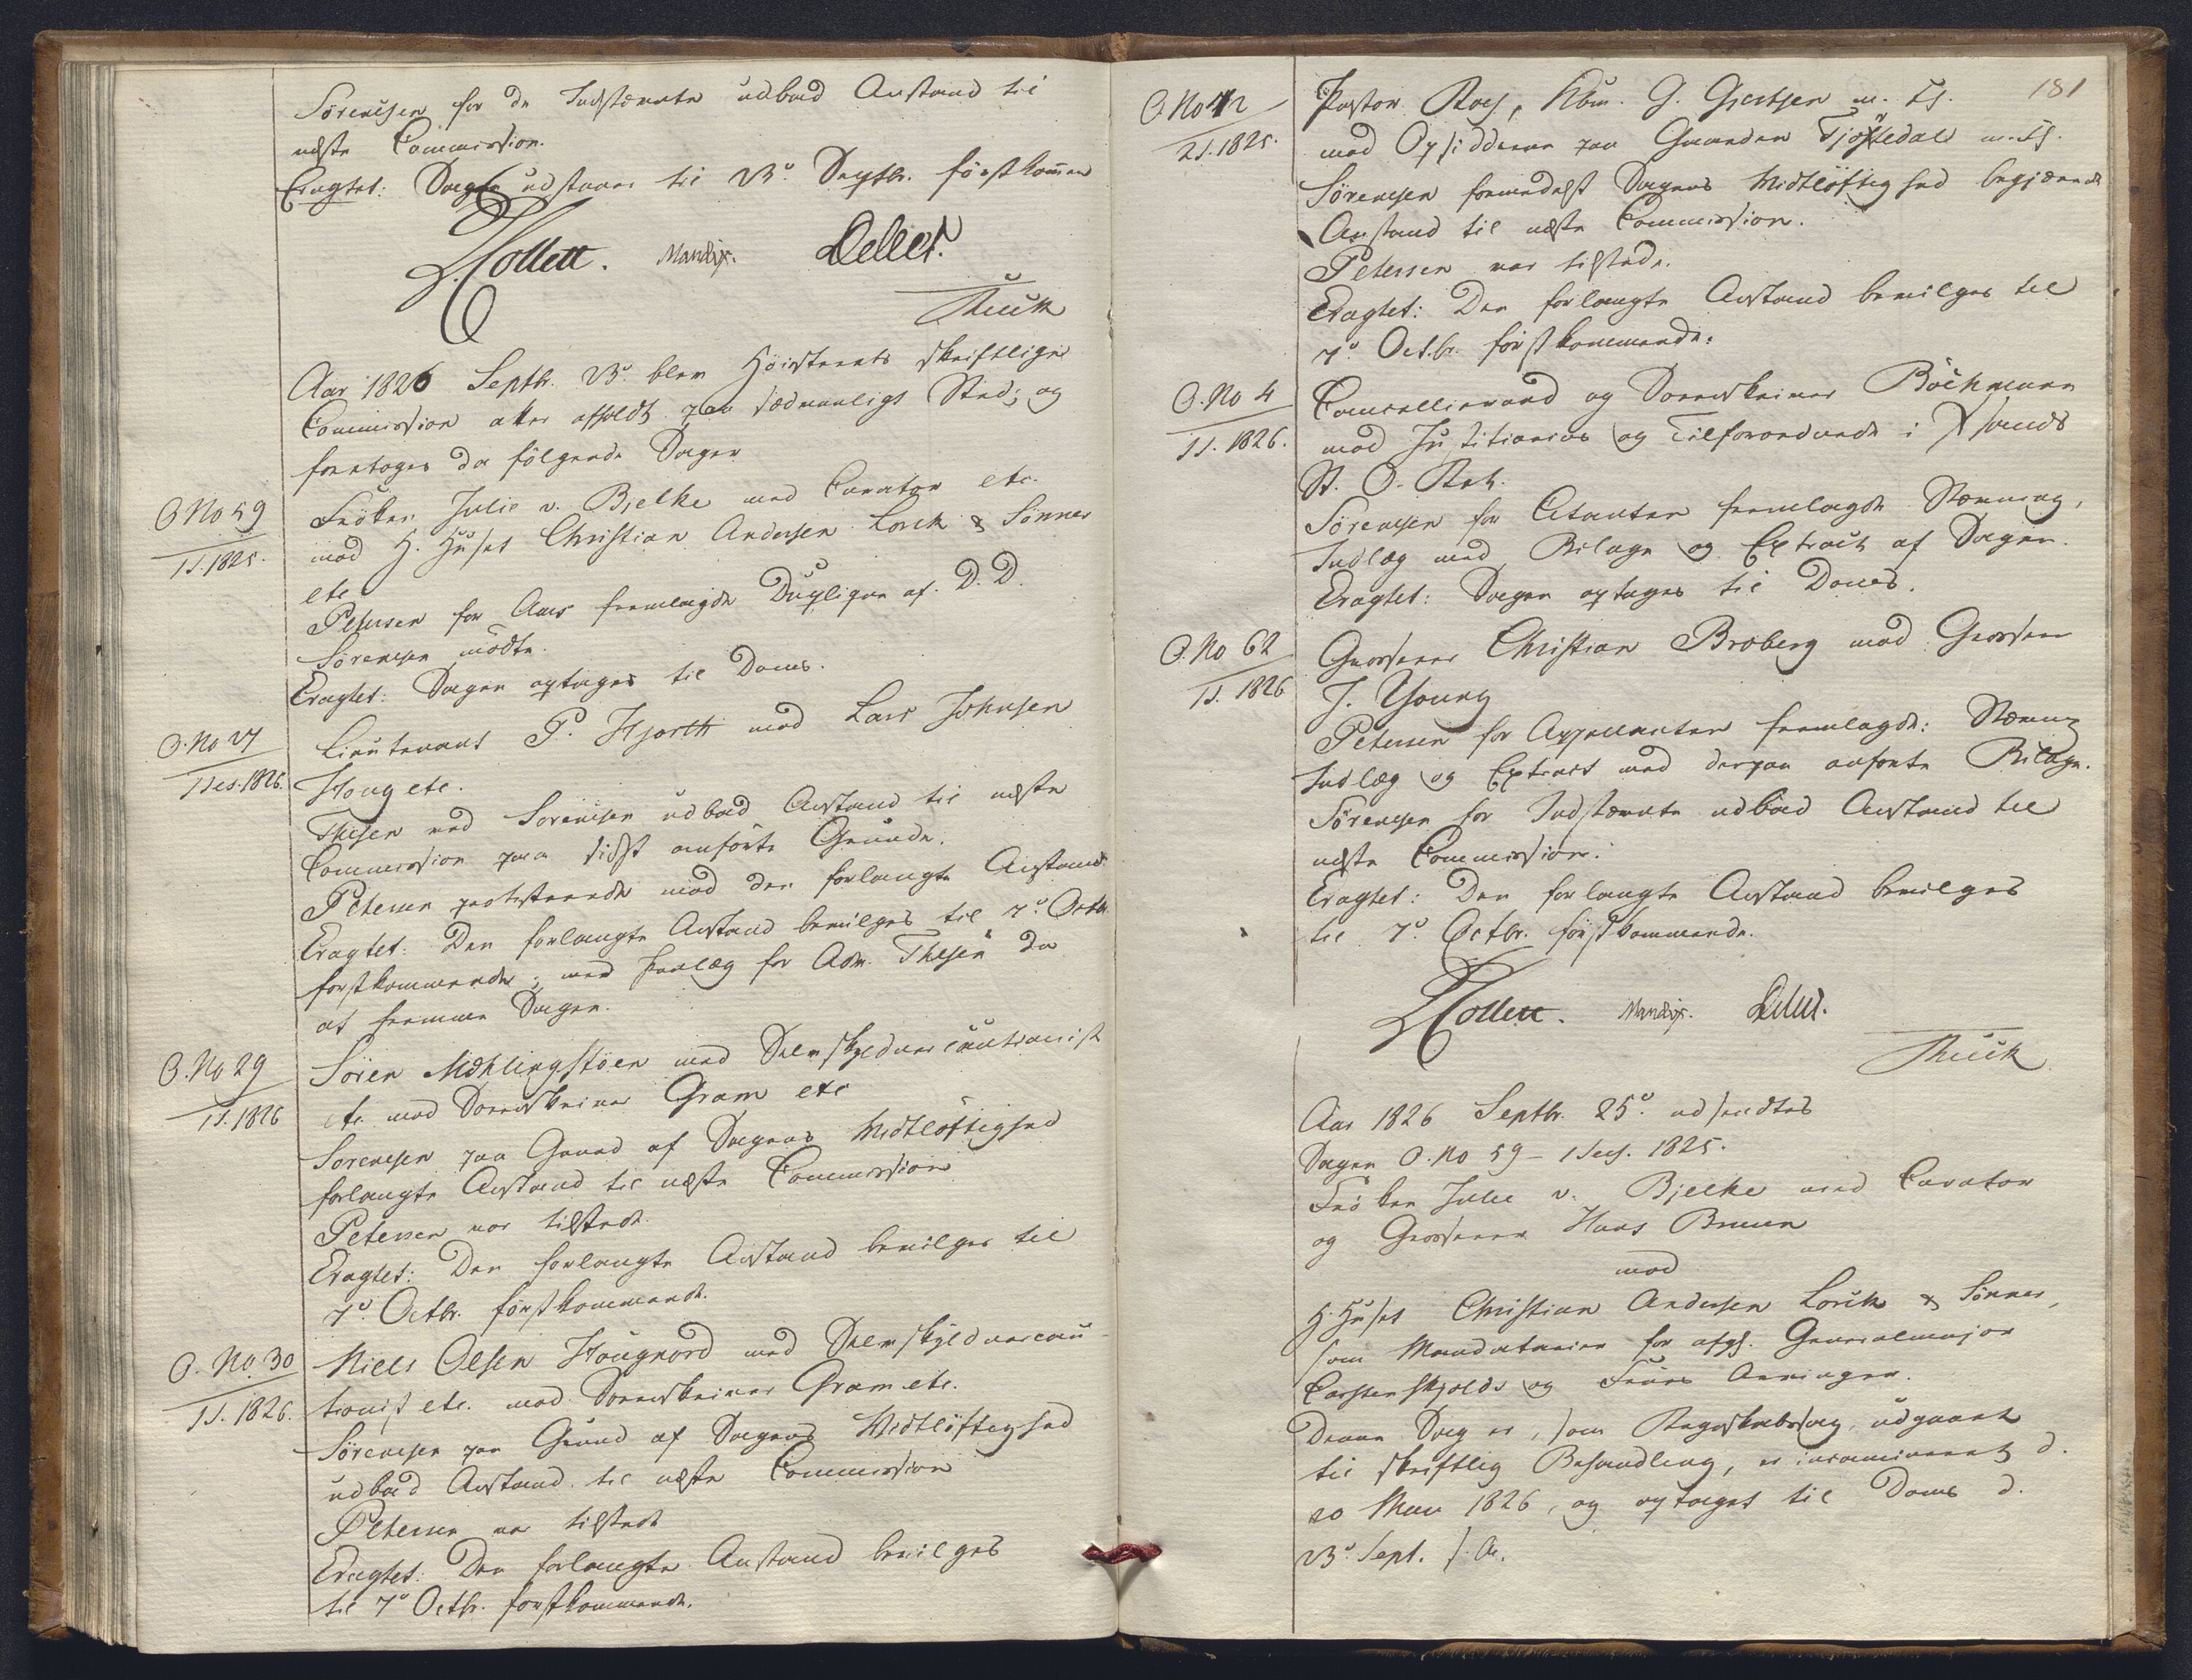 Sörensen for de Indstævnte udbad Anstand til
næste Commission.
Eragtet: Sagen udstaaer til 23de Septbr. förstkommen
JCollett. Mandix. Debes.
Munk
Aar 1826 Septbr. 23de blev Höiesterets skriftlige
Commission atter afholdt paa sædvanligt Sted; og
foretoges da fölgende Sager
O No 59
1 S. 1825.
Fröken Julie v. Bjelke med Curator etc.
mod H. Huset Christian Andersen Lorck & Sönner
etc
Petersen for Aars fremlagde Duplique af D. D.
Sörensen mödte.
Eragtet: Sagen optages til Doms.
O. No 27
1 Ses. 1826.
Lieutenant P. Hjorth mod Lars Johnsen
Houg etc.
Thesen ved Sörensen udbad Anstand til næste
Commission paa sidst anförte Grunde.
Petersen protesterede mod den forlangte Anstand
Eragtet: Den forlangte Anstand bevilges til 7de Octbr.
förstkommende; med Paalæg for Adv. Thesen da
at fremme Sagen.
O. No 29
1 S. 1826
Sören Mæhlingstöen med Selvskyldnercautionist
etc mod Sorenskriver Gram etc
Sörensen paa Grund af Sagens Vidtlöftighed
forlangte Anstand til næste Commission
Petersen var tilstede.
Eragtet: Den forlangte Anstand bevilges til
7de Octbr. förstkommende.
O. No 30
1 S. 1826.
Niels Olsen Hougnord med Selvskyldnercau-
tionist etc. mod Sorenskriver Gram etc.
Sörensen paa Grund af Sagens Vidtlöftighed
udbad Anstand til næste Commission
Petersen var tilstede
Eragtet: Den forlangte Anstand bevilges
til 7de Octbr. förstkommende.
181
O. No 42
2 S. 1825.
Pastor Roes, Kbm. G. Gjertsen m. fl.
mod Opsidderne paa Gaarden Tjöstedal m. fl.
Sörensen formedelst Sagens Vidtlöftighed begjærede
Anstand til næste Commission.
Petersen var tilstede.
Eragtet: Den forlangte Anstand bevilges til
7de Octbr. förstkommende.
O. No 4
1 S. 1826.
Cancelliraad og Sorenskriver Böckmann
mod Justitiarius og Tilforordnede i Xsands
St. O. Ret.
Sörensen for Citanten fremlagde Stævning,
Indlæg med Bilage og Extract af Sagen.
Eragtet: Sagen optages til Doms.
O. No 62
1 S. 1826
Grosserer Christian Broberg mod Grosserer
J. Young
Petersen for Appellanten fremlagde: Stævning
Indlæg og Extract med derpaa anförte Bilage.
Sörensen for Indstævnte udbad Anstand til
næste Commission.
Eragtet: Den forlangte Anstand bevilges
til 7de Octbr. förstkommende.
JCollett. Mandix. Debes.
Munk
Aar 1826 Septbr. 25de udsendtes
Sagen O. No 59 - 1 Sess. 1825.
Fröken Julie v. Bjelke med Curator
og Grosserer Hans Bruun
mod
H. Huset Christian Andersen Lorck & Sönner,
som Mandatarier for afg. Generalmajor
Carstenskjolds og Frues Arvinger.
Denne Sag er, som Regnskabssag, udgaaet
til skriftlig Behandling, er incamineret d.
20 Mai 1826, og optaget til Doms d.
23de Sept. s. A.